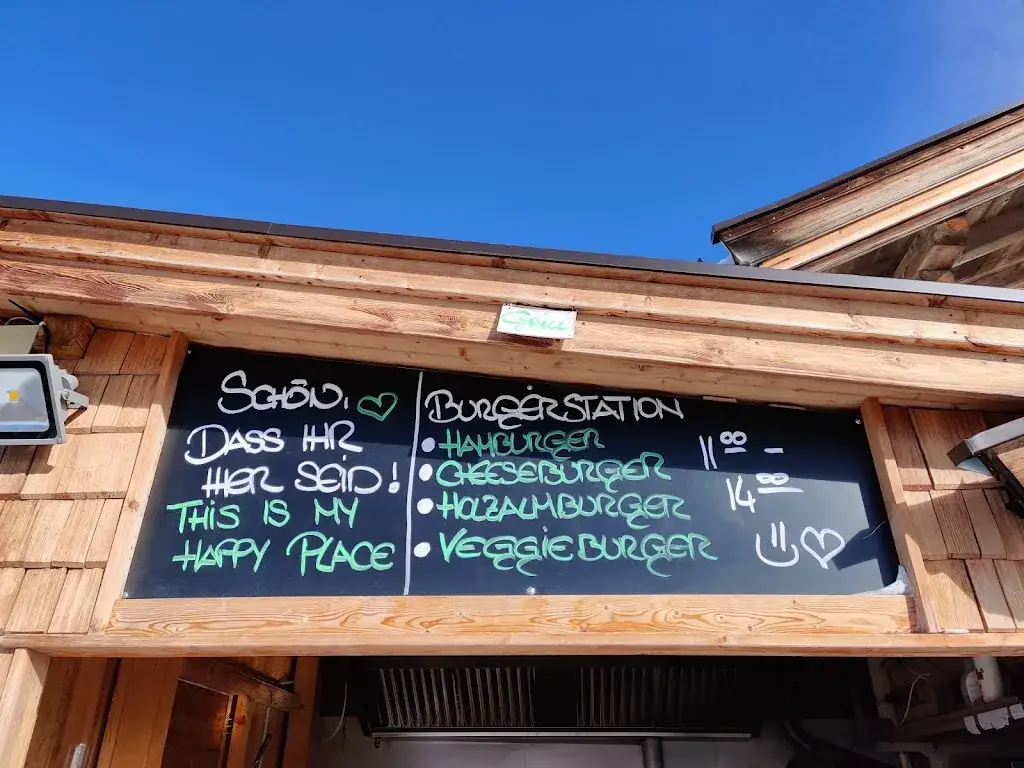 GRILL
SCHÖN,
DASS IHR
HIER SEID!
THIS IS MY
HAPPY PLACE
BURGERSTATION
• HAMBURGER
• CHEESEBURGER
• HOLZALMBURGER
• VEGGIEBURGER
11 00 –
14 00